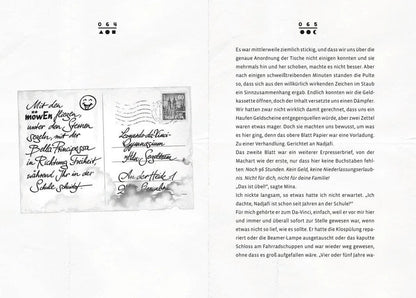 064
Mit den
möwEn fliegen,
unter den Sternen
segeln, mit der
Bella Principessa
in Richtung Freiheit
während Ihr in der
Schule schwitzt
Leonardo-da-Vinci-
Gymnasium
An der Heide 1
065
Es war mittlerweile ziemlich stickig, und dass wir uns über die
genaue Anordnung der Tische nicht einigen konnten und sie
mehrmals hin und her schoben, machte es nicht besser. Aber
nach einigen schweißtreibenden Minuten standen die Pulte
so, dass sich aus den willkürlich wirkenden Zeichen im Staub
ein Sinnzusammenhang ergab. Endlich konnten wir die Geld-
kassette öffnen, doch der Inhalt versetzte uns einen Dämpfer.
Wir hatten zwar nicht wirklich damit gerechnet, dass uns ein
Haufen Geldscheine entgegenquellen würde, aber zwei Zettel
waren etwas mager. Doch sie machten uns bewusst, um was
es hier ging, denn das obere Blatt Papier war eine Vorladung.
Zu einer Verhandlung. Gerichtet an Nadjafi.
Das zweite Blatt war ein weiterer Erpresserbrief, von der
Machart wie der erste, nur dass hier keine Buchstaben fehl-
ten: Noch 96 Stunden. Kein Geld, keine Niederlassungserlaub-
nis. Nicht für dich, nicht für deine Familie!
„Das ist übel!", sagte Mina.
Ich nickte langsam, so etwas hatte ich nicht erwartet. „Ich
dachte, Nadjafi ist schon seit Jahren an der Schule?"
Für mich gehörte er zum Da-Vinci, einfach, weil er vor mir hier
und immer und überall sofort zur Stelle gewesen war, wenn
etwas nicht so lief, wie es sollte. Er hatte die Klospülung repa-
riert oder die Beamer-Lampe ausgetauscht oder das kaputte
Schloss am Fahrradschuppen und war wieder weg gewesen,
ohne dass es groß aufgefallen wäre. „Vier oder fünf Jahre wa-